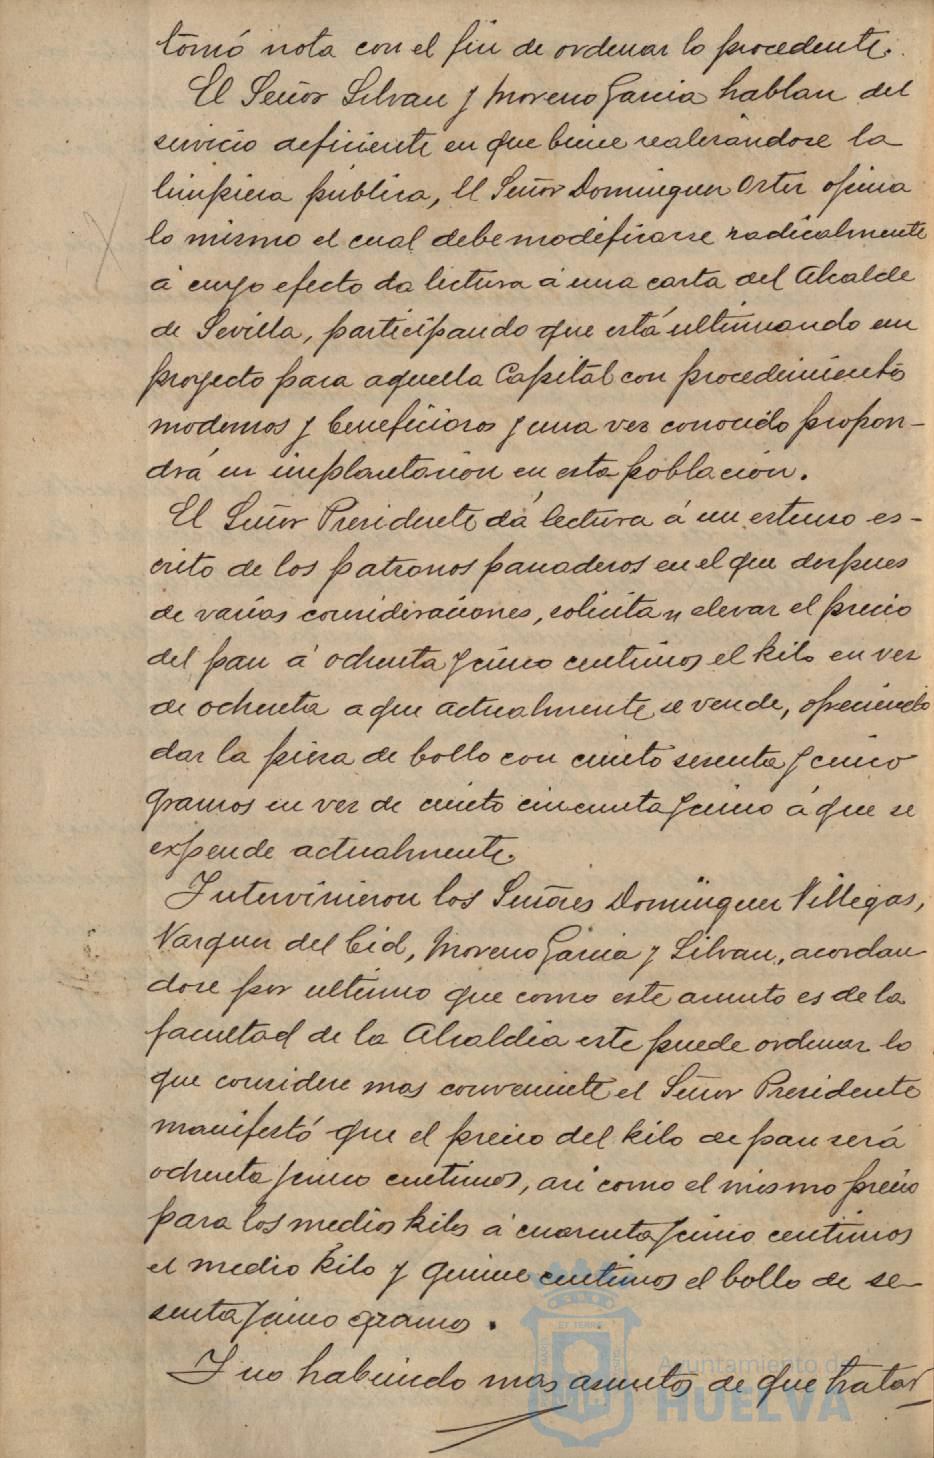 tomó nota con el fin de ordenar lo procedente.
El Señor Silvan y Moreno Garcia hablan del
servicio deficiente en que biene realisandose la
limpiesa pública, El Señor Dominguez Ortiz opina
lo mismo el cual debe modificarse radicalmente
á cuyo efecto da lectura á una carta del Alcalde
de Sevilla, participando que está ultimando un
proyecto para aquella Capital con procedimientos
modernos y beneficiosos y una vez conocido propon-
drá su implantacion en esta población.
El Señor Presidente dá lectura á un extenso es-
crito de los patronos panaderos en el que despues
de varias consideraciones, solicitan elevar el precio
del pan á ochenta y cinco centimos el kilo en vez
de ochenta a que actualmente se vende, ofreciendo
dar la pieza de bollo con ciento sesenta y cinco
gramos en vez de ciento cincuenta y cinco á que se
expende actualmente.
Intervinieron los Señores Dominguez Villegas,
Vazquez del Cid, Moreno Garcia y Silvan, acordan-
dose por ultimo que como este asunto es de la
facultad de la Alcaldia este puede ordenar lo
que considere mas conveniente el Señor Presidente
manifestó que el precio del kilo de pan será
ochenta y cinco centimos, asi como el mismo precio
para los medios kilos á cuarenta y cinco centimos
el medio kilo y quince centimos el bollo de se-
senta y cinco gramos.
Y no habiendo mas asuntos de que tratar
Ayuntamiento de
HUELVA